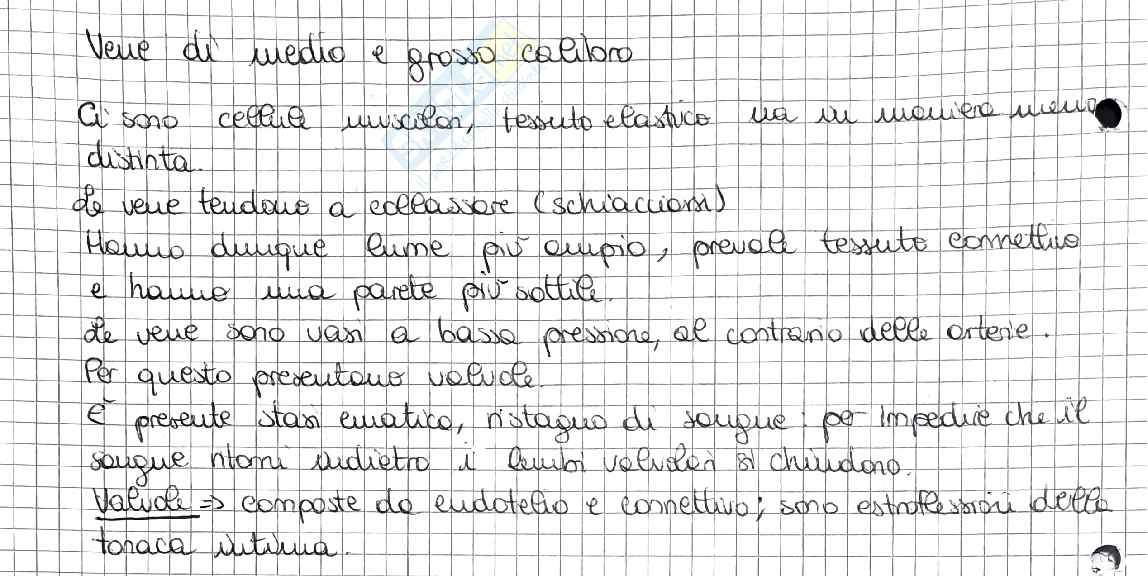 Vene di medio e grosso calibro
Ci sono cellule muscolari, tessuto elastico ma in maniera meno
distinta.
Le vene tendono a collassare (schiacciarsi)
Hanno dunque lume più ampio, prevale tessuto connettivo
e hanno una parete più sottile.
Le vene sono vasi a bassa pressione, al contrario delle arterie.
Per questo presentano valvole.
È presente stasi ematica, ristagno di sangue: per impedire che il
sangue ritorni indietro i lembi valvolari si chiudono.
Valvole => composte da endotelio e connettivo; sono estroflessioni della
tonaca intima.